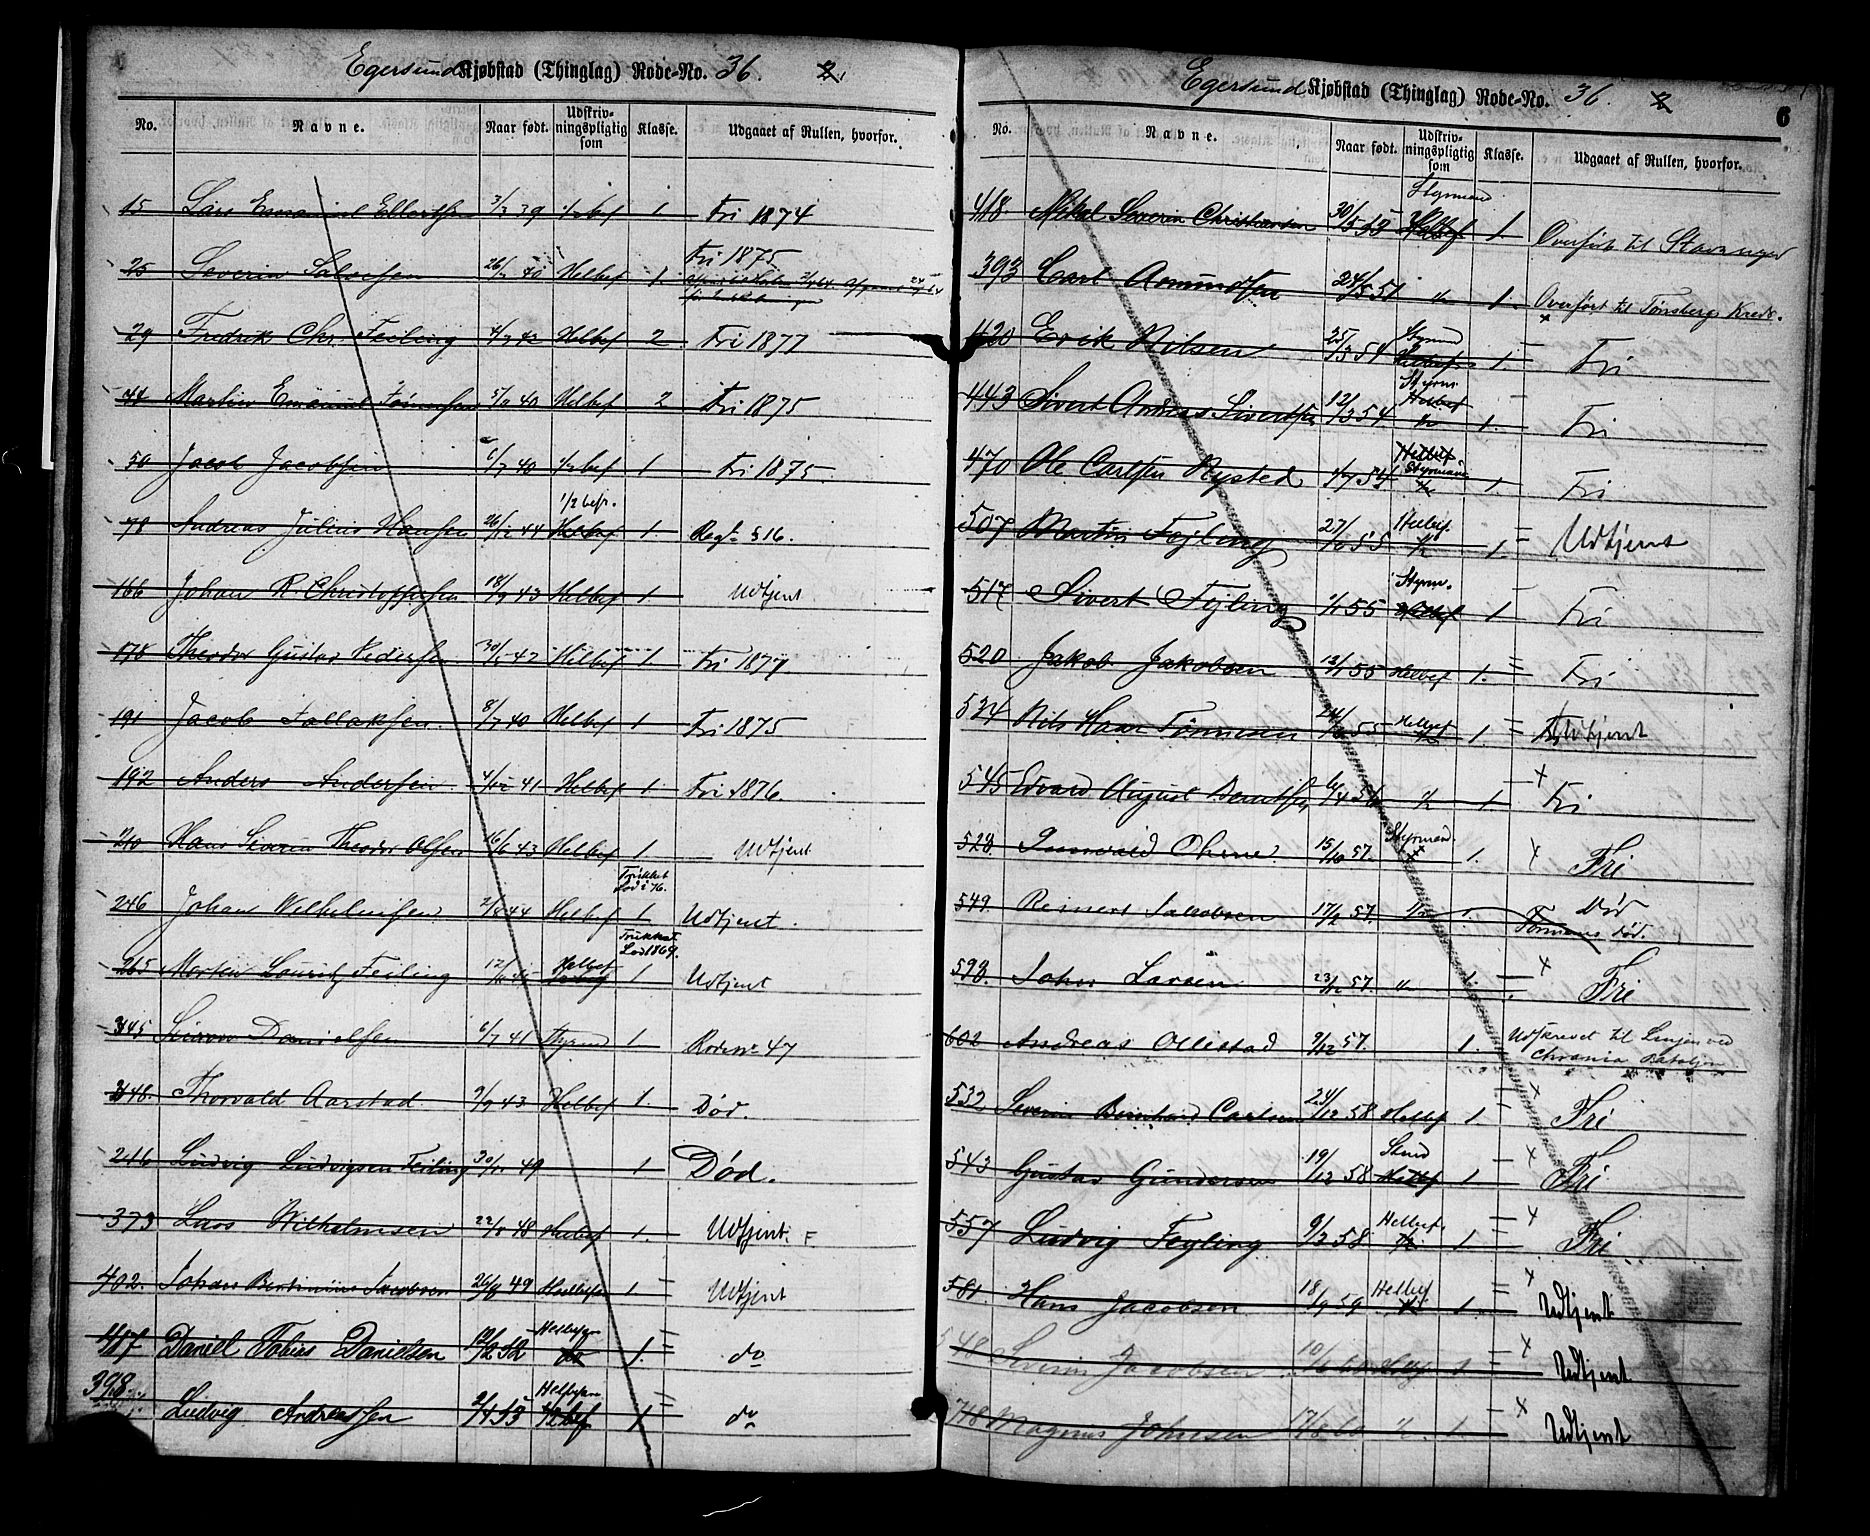 Egersund Kjøbstad (Thinglag) Rode-No. 36. 2.
No. Navne. Naar født. Udskrivningspligtig som Klasse. Udgaaet af Rullen, hvorfor.
15 Lars Emanuel Ellertsen 3/3 39 1/2 bef 1 Fri 1874
25 Severin Salvesen 40 Helbef 1. Fri 1875
29 Fredrik Chr. Feiling 42 Helbef 2 Fri 1877
44 Martin Emanuel Tønnesen 40 Helbef 2 Fri 1875
50 Jacob Jacobsen 6/7 40 1/2 bef 1 Fri 1875
1/2 bef.
78 Andreas Julius Hansen 26/12 44 Helbef 1. Regs. 516.
166 Johan R. Christoffersen 18/9 43 Helbef 1. Udtjent
178 Theodor Gustav Pedersen 42 Helbef 1 Fri 1877.
191 Jacob Tollaksen 8/7 40 Helbef 1 Fri 1875
192 Anders Andersen 41 Helbef 1. Fri 1876.
210 Hans Severin Theodor Olsen 16/6 43 Helbef 1. Udtjent
Trukket Lod i 76.
246 Johan Wilhelmsen 44 Helbef 1 Udtjent.
Trukket Lod 1869.
265 Morten Lauritz Feiling 45 Helbef 1 Udtjent
345 Danielsen 6/7 41 Styrmd 1 Rode No 47
348. Thorvald Aarstad 9/9 43 Helbef 1. Død.
246 Ludvig Ludvigsen Feiling 30/11 49 1 Død.
373 Lars Wilhelmsen 48 Helbef 1. Udtjent. F.
402. Johan Bertinius Jacobsen 49 Helbefn 1. Udtjent
Helbefn
417 Daniel Tobias Danielsen 12/2 52 do 1. do
398 Ludvig Andreassen 53 Helbefn 1/2 bef 1 do
Egersund Kjøbstad (Thinglag) Rode-No. 36. 2 6
No. Navne. Naar født. Udskrivningspligtig som Klasse. Udgaaet af Rullen, hvorfor.
Styrmand
418 Mikal Severin Christiansen 30/5 53 Helbef 1. Overført til Stavanger
393 Carl Amundsen 24/5 51 " 1. Overført til Tønsbergs Kreds.
420 Erik Nilsen 25/3 54 Styrmd Helbef 1. Fri
443 Sivert Andreas Sivertsen 12/3 54 Styrm Helbef 1. Fri
470 Ole Carlsen Nysted 54 Helbef Styrmand 1. Fri
507 Martin Fejling 27/10 55 Helbef 1/2 1. Udtjent
517 Sivert Fejling 1/1 55 Styrm. Helbef 1 Fri
520 Jakob Jakobsen 12/1 55 Helbef 1. Fri
534 Nils Haar Tønnesen 55 Helbef 1. Udtjent
545 Edvard August Berntsen 6/4 56 " 1 Fri
528. Ohrne. 15/10 57. Styrmand 1. Fri
549. Reinert Jacobsen 17/2 57. " 1. Død
Formens. død.
593. Johan Larsen 23/12 57. " 1. Fri
602 Andreas Ollestad 9/12 57. 1. Udskrevet til Linjen ved Chrania Bataljon
532 Severin Bernhard Carlsen 24/12 58 Helbef 1. Fri
543 Gustav Gundersen 19/12 58 Stmd Helbef 1 Fri
557 Ludvig Feyling 9/2 58 Helbef 1. Fri
581. Hans Jacobsen 18/9 59 Helbef 1. Udtjent
548 Severin Jacobsen 10/6 60 Helbef 1 Udtjent
748 Magnus Johnsen 17/8 60 " 1 Udtjent